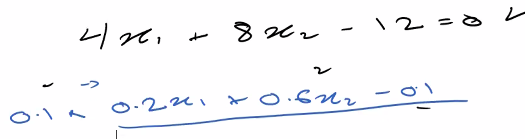 4x₁ + 8x₂ - 12 = 0
0.1 x 0.2x₁ + 0.6x₂ - 0.1